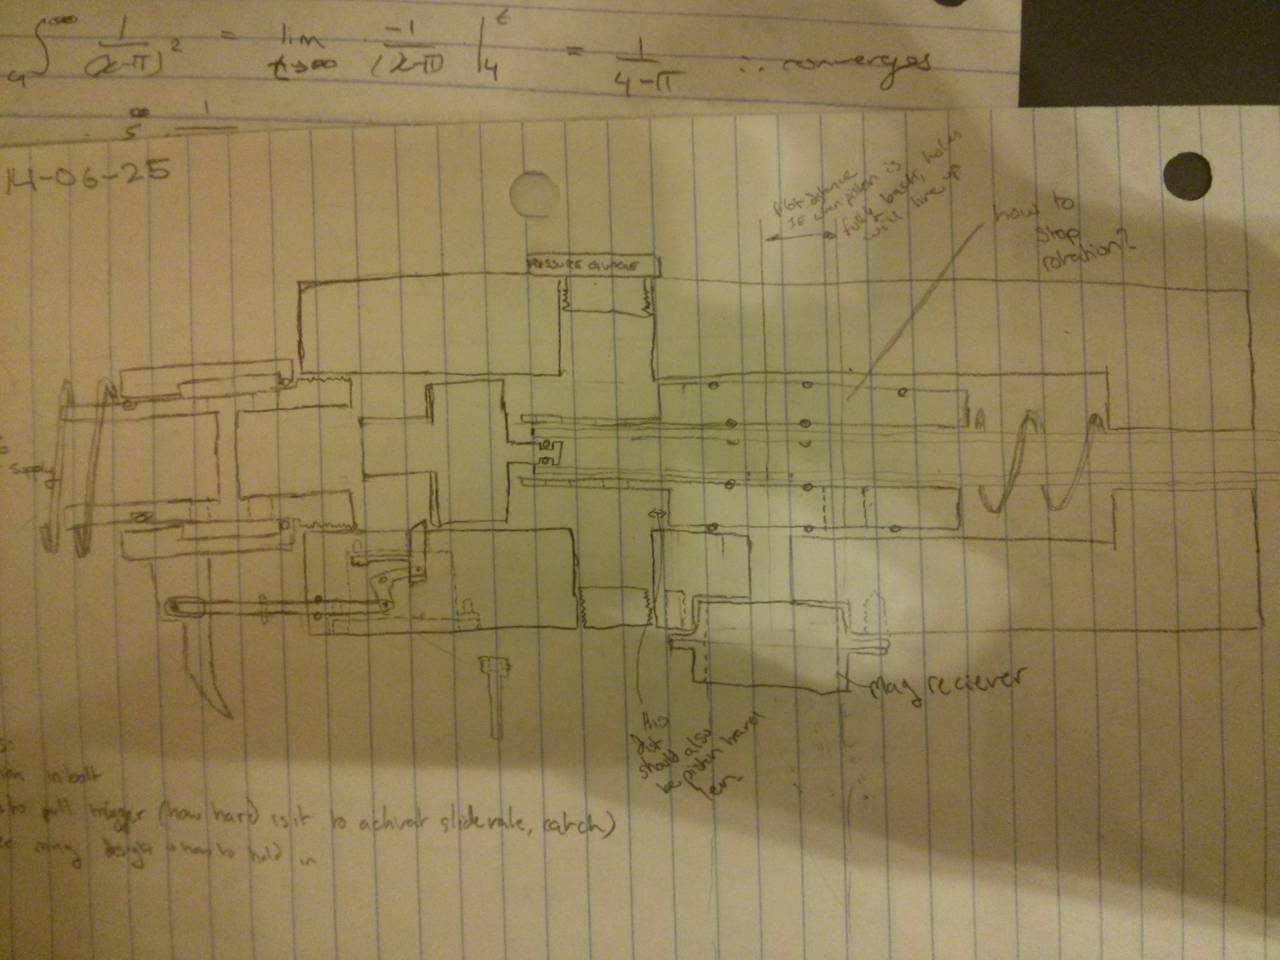 4∫^∞ 1/(x-π)² = lim t→∞ -1/(x-π) |₄^t = 1/(4-π) ∴ converges
∞
∫ 1
14-06-25
distance
when piston is
fully back, holes
will line up
how to
stop
rotation?
PRESSURE GUAGE
supply
mag reciever
this
dist
should also
be piston travel
len
s:
in bolt
to pull trigger (how hard is it to activat slide valve, catch)
mag how to hold in